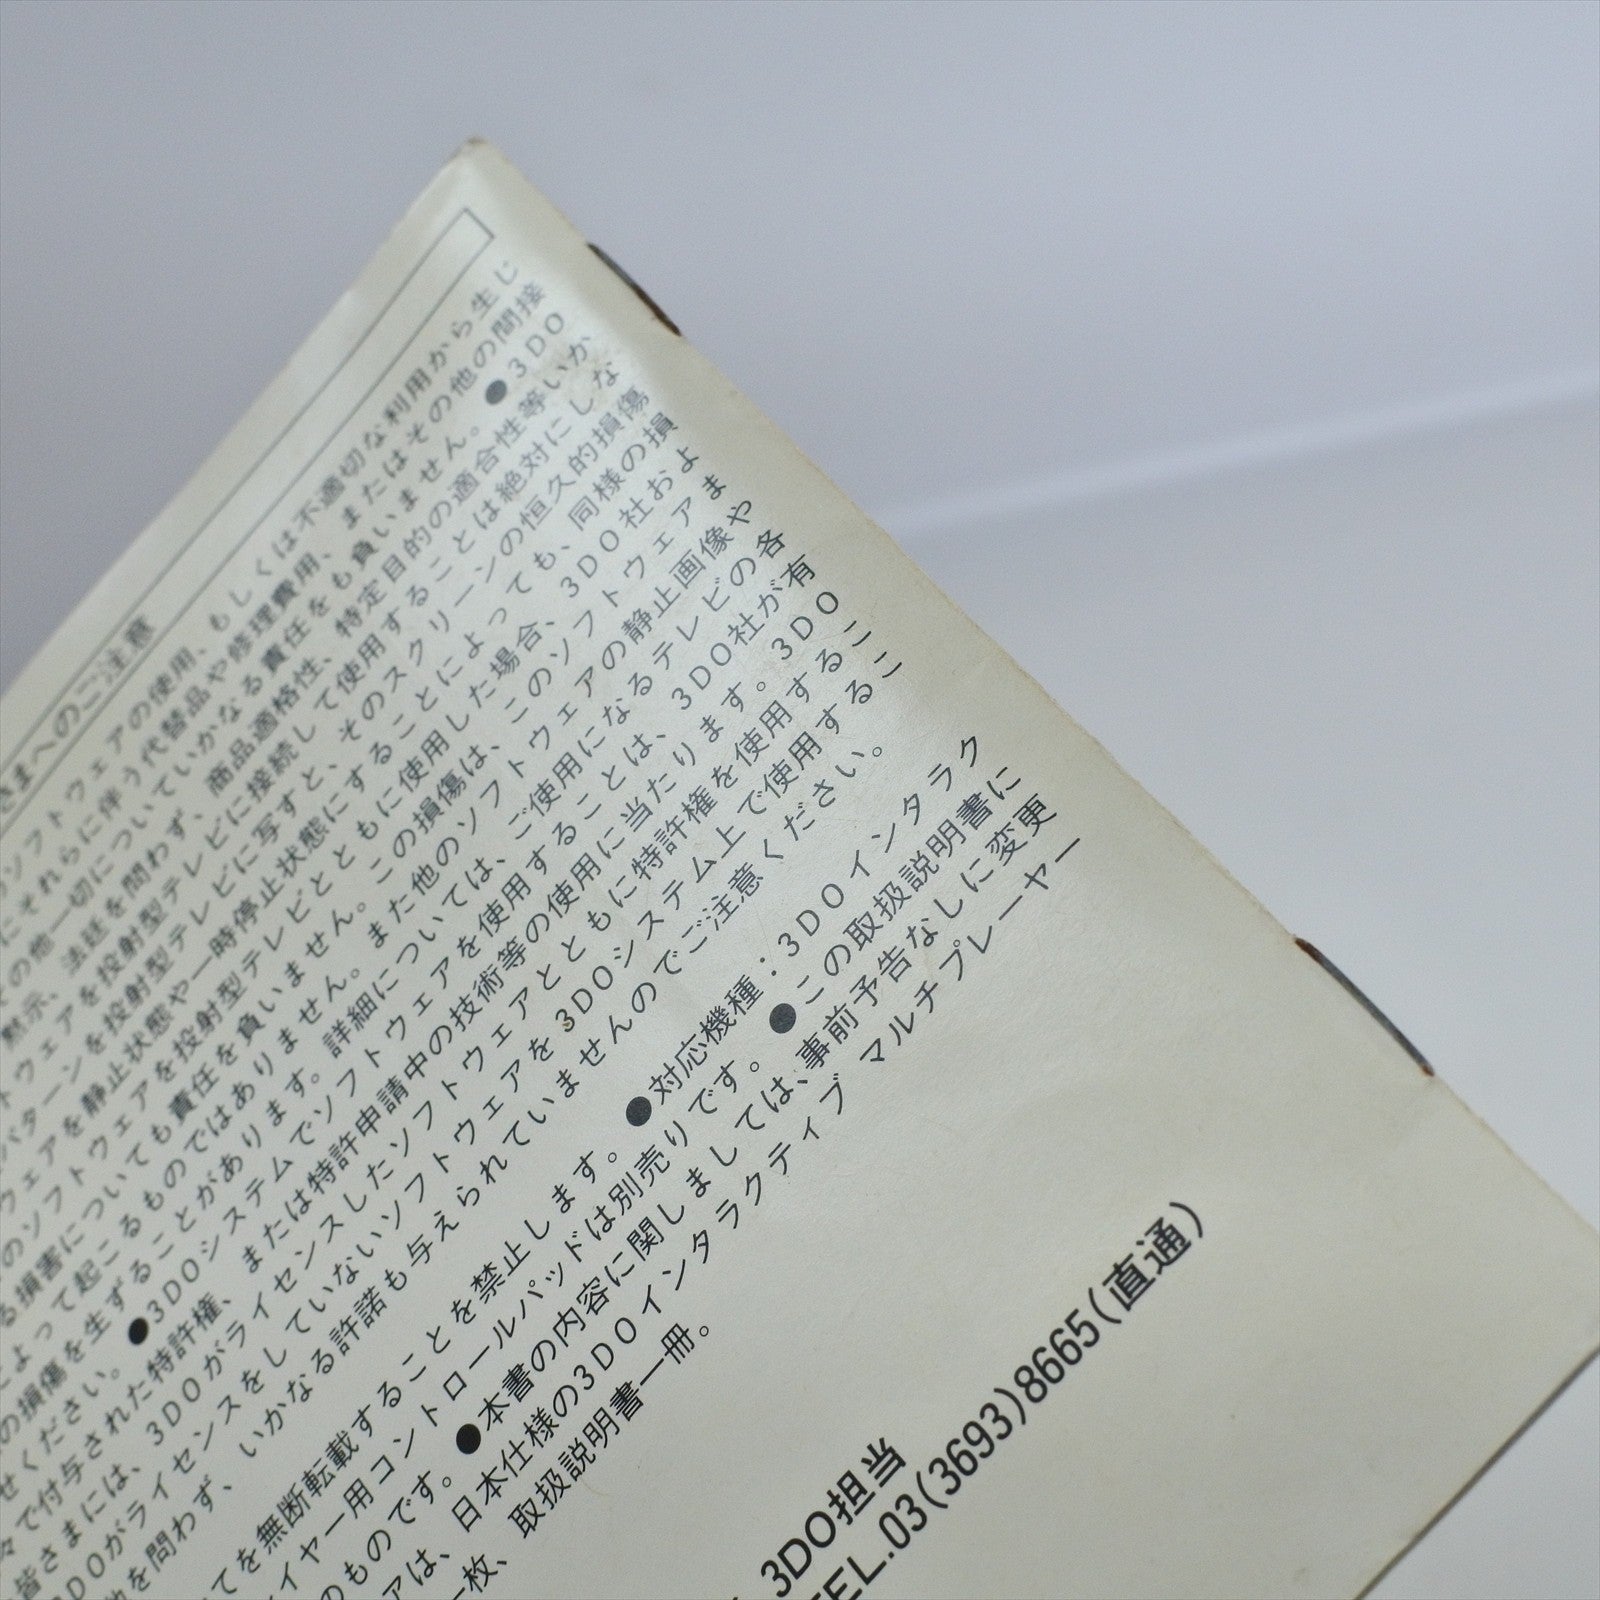 さまへのご注意
ソフトウェアの使用、もしくは不適切な利用から生じ
にそれらに伴う代替品や修理費用、またはその他の間接
その他一切についていかなる責任をも負いません。●3DO
黙示、法廷を問わず、商品適格性、特定目的の適合性等いか
トウェアを投射型テレビに接続して使用することは絶対にしな
パターンを投射型テレビに写すと、そのスクリーンの恒久的損傷
ウェアを静止状態や一時停止状態にすることによっても、同様の損
のソフトウェアを投射型テレビとともに使用した場合、3DO社およ
る損害についても責任を負いません。この損傷は、このソフトウェアま
によって起こるものではありません。また他のソフトウェアの静止画像や
の損傷を生ずることがあります。詳細については、ご使用になるテレビの各
せください。●3DOシステムでソフトウェアを使用することは、3DO社が有
々で付与された特許権、または特許申請中の技術等の使用に当たります。3DO
皆さまには、3DOがライセンスしたソフトウェアとともに特許権を使用するこ
3DOがライセンスをしていないソフトウェアを3DOシステム上で使用するこ
を問わず、いかなる許諾も与えられていませんのでご注意ください。
てを無断転載することを禁止します。●対応機種：3DOインタラク
イヤー用コントロールパッドは別売りです。●この取扱説明書に
のものです。●本書の内容に関しましては、事前予告なしに変更
アは、日本仕様の3DOインタラクティブ マルチプレーヤー
一枚、取扱説明書一冊。
3DO担当
TEL.03(3693)8665(直通)